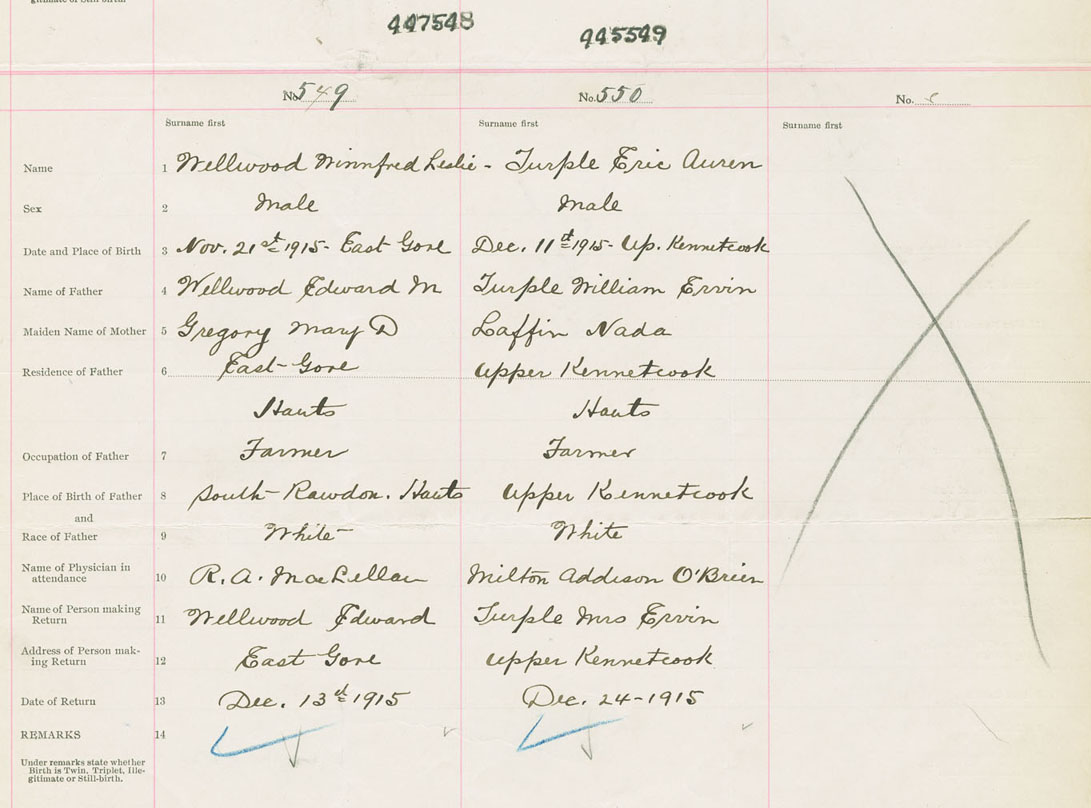 gitimate or Still-birth.
447548 445549
No. 549 No. 550 No.
Surname first Surname first Surname first
Name 1 Wellwood Winnfred Leslie - Turple Eric Auren
Sex 2 Male Male
Date and Place of Birth 3 Nov. 21st 1915- East Gore Dec. 11th 1915- Up. Kennetcook
Name of Father 4 Wellwood Edward M Turple William Ervin
Maiden Name of Mother 5 Gregory Mary D Laffin Nada
Residence of Father 6 East-Gore Upper Kennetcook
Hants Hants
Occupation of Father 7 Farmer Farmer
Place of Birth of Father 8 South-Rawdon. Hants Upper Kennetcook
and
Race of Father 9 White White
Name of Physician in
attendance 10 R. A. MacLellan Milton Addison O'Brien
Name of Person making
Return 11 Wellwood Edward Turple Mrs Ervin
Address of Person mak-
ing Return 12 East Gore Upper Kennetcook
Date of Return 13 Dec. 13th 1915 Dec. 24-1915
REMARKS 14
Under remarks state whether
Birth is Twin, Triplet, Ille-
gitimate or Still-birth.